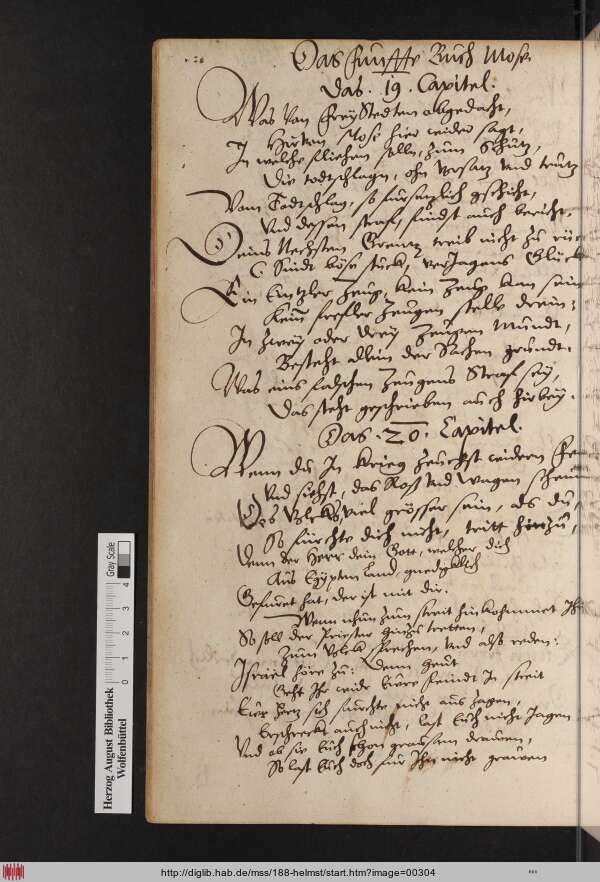 Das Fünffte Buch Mose
das . 19 . Capitel.
Was Von FreyStedten abgedacht,
Mose hier wider sagt,
In welche fliehen solln, zum Schutz,
Die todtschlagn, ohn Vorsatz Vnd trutz
Vom Todtschlag, so fürsetzlich gschicht,
Vnd dessen straf, findst auch bericht.
Deins Nechsten Grenetz treib nicht zu rück
Sindt böse stück, verJagens Glück
Ein Eintzler Zeug, kein Zeug kan sein
Keinn frefler Zeugen stelle drein:
In zwey oder drey Zeugen Mundt,
Besteht allein der Sachen grundt.
Was eins falschen Zeugens Straf sey,
Das steht geschrieben auch hirbey.
Das . 20 . Capitel.
Wenn du In Krieg zeuchst widern
Vnd siehst, das Roß Vnd Wagen
Des Volcks, viel grösser sein, als du,
So fürchte dich nicht, tritt hinzu,
Denn der Herr dein Gott, welcher dich
Aus Egypten Land gnedigklich
Gefüret hat, der ist mit dir.
Wenn nhun zum streit hinkohmmet Ihr
So soll der Priester hinzu tretten,
Zum Volck sprechen, Vnd alß reden:
Israel höre zu: dann heut
Geht Ihr wider Euere feindt In streit
Eur Hertz sich fürchte nicht aus zagen,
Erschreckt auch nicht, last Euch nicht Jagen
Vnd ob sie Euch schon grausam drawen,
So last Euch doch für Ihn nicht grawen
Herzog August Bibliothek
Wolfenbüttel
0 1 2 3 4
Gray Scale
http://diglib.hab.de/mss/188-helmst/start.htm?image=00304